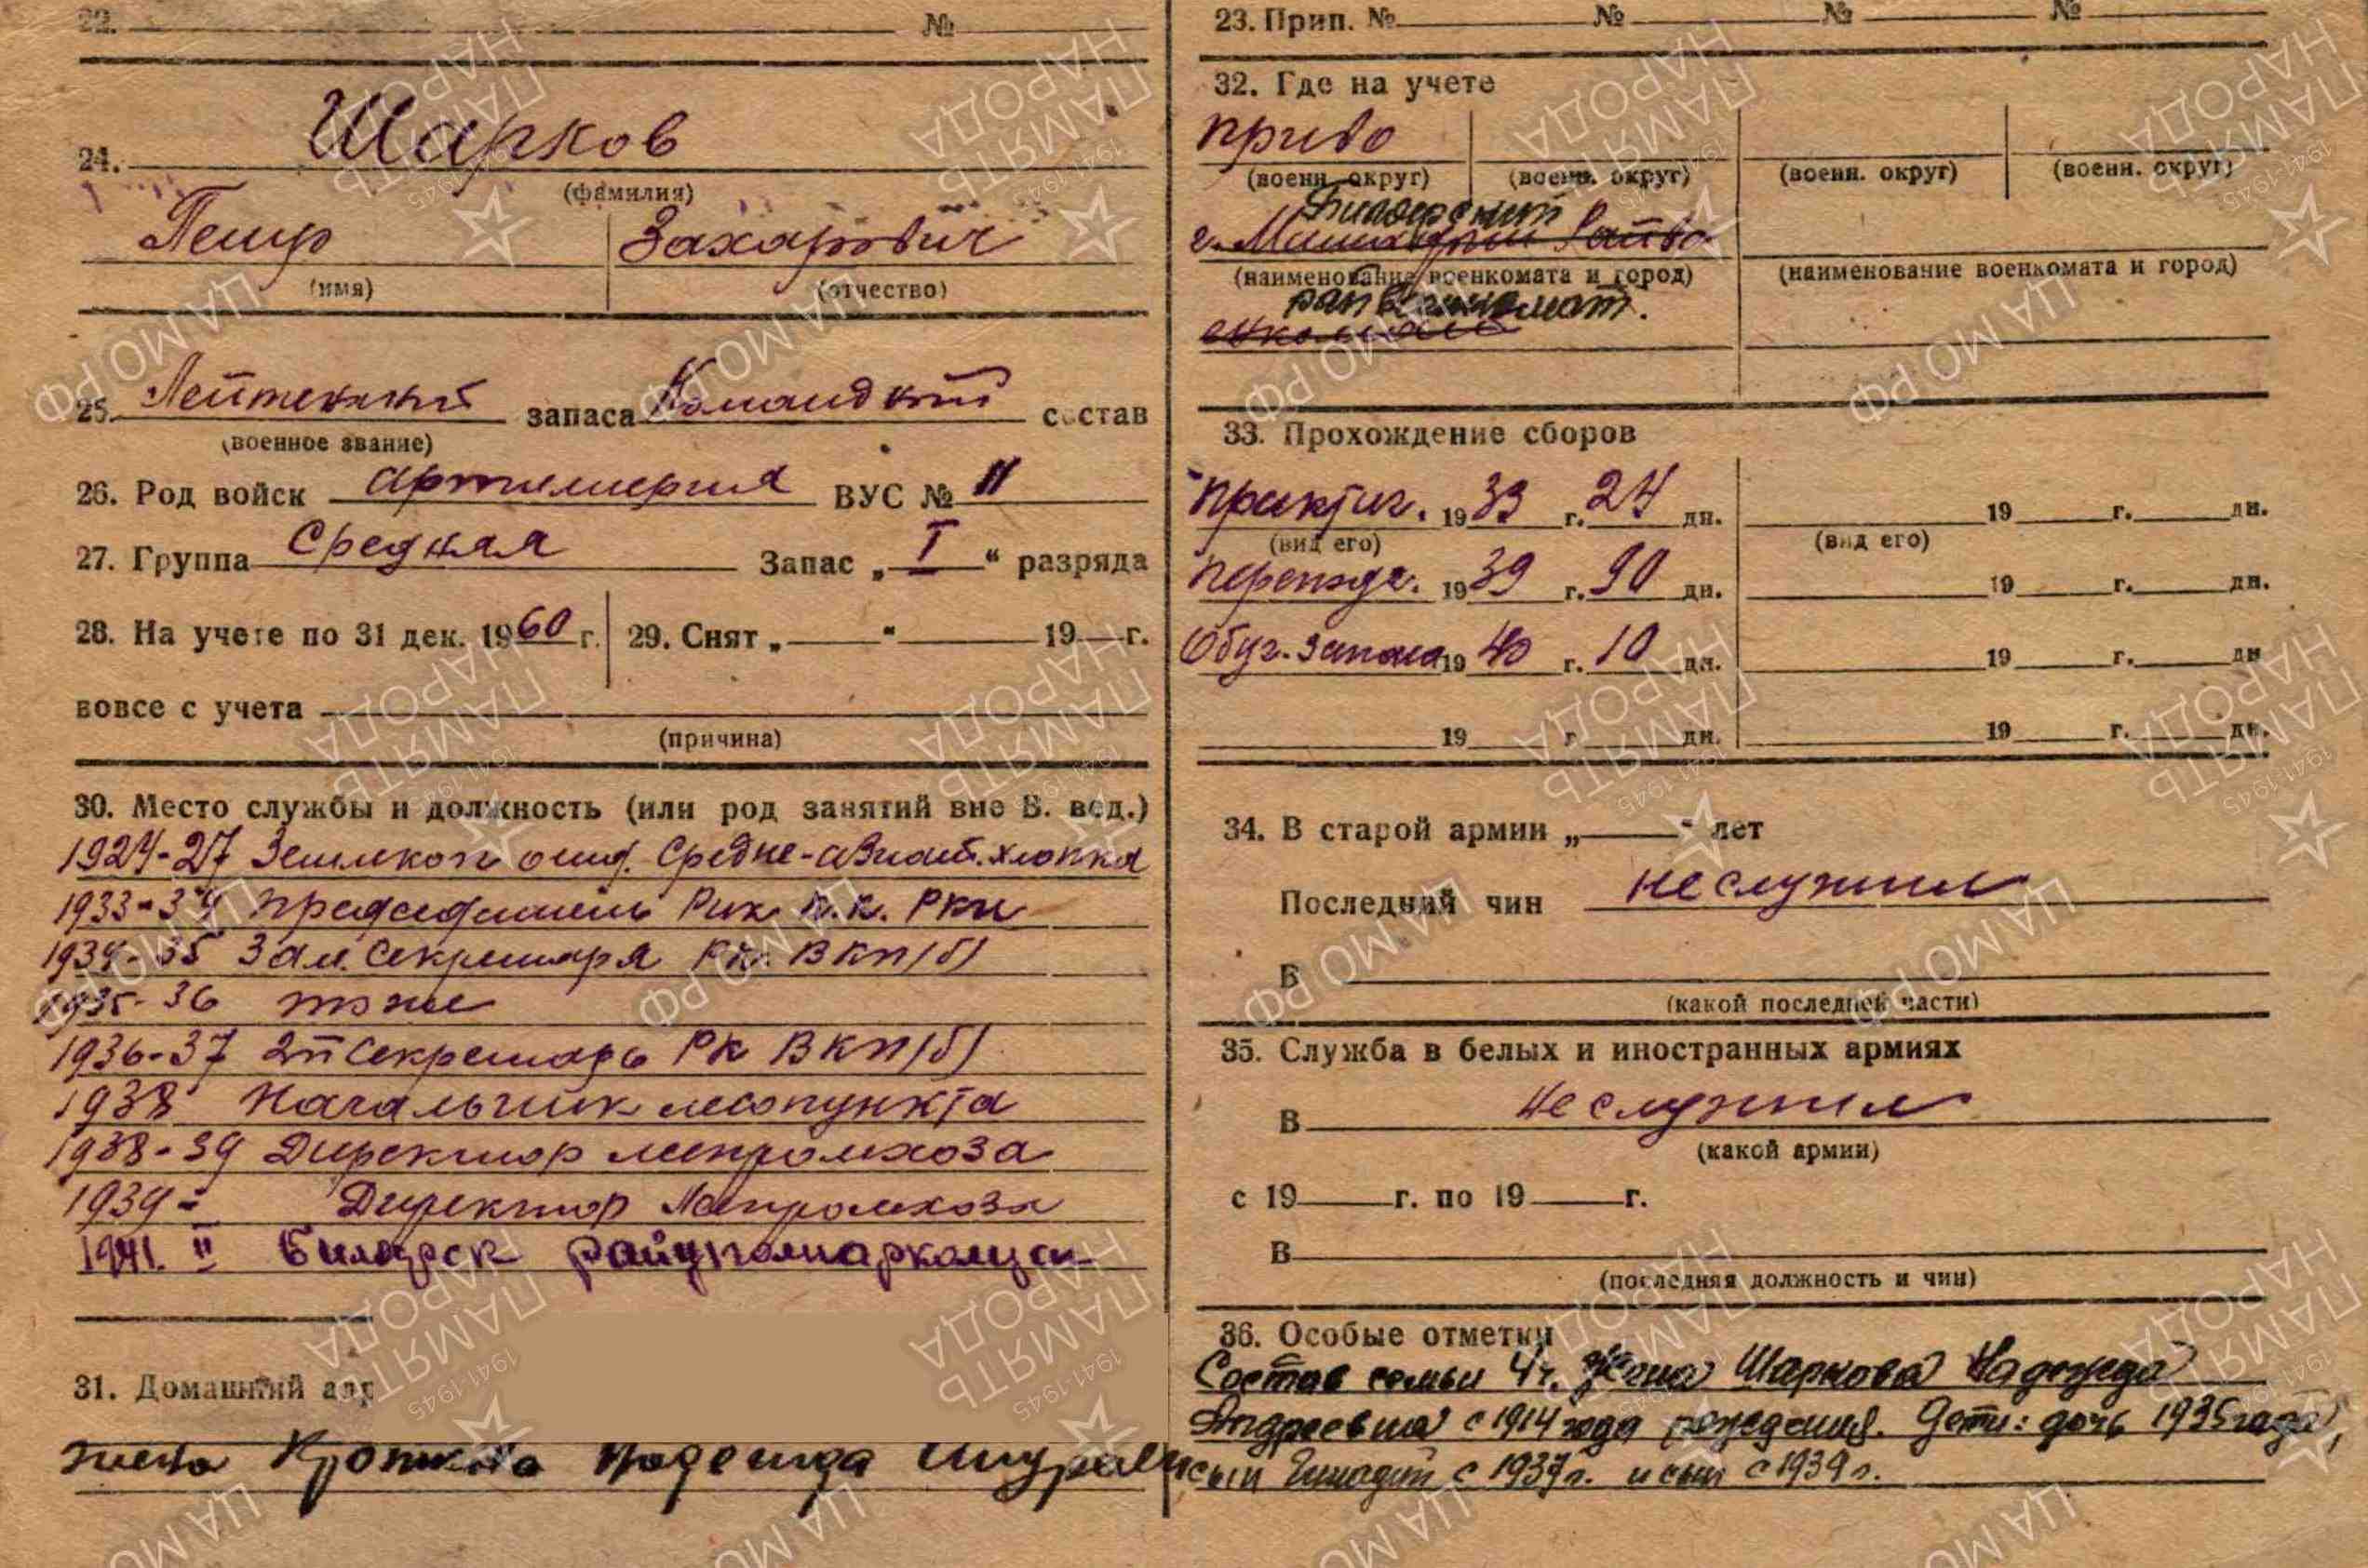 22. №
24. Шарков
(фамилия)
Петр Захарович
(имя) (отчество)
25. Лейтенант запаса Командный состав
(военное звание)
26. Род войск артиллерия ВУС № II
27. Группа Средняя Запас „ I “ разряда
28. На учете по 31 дек. 1960 г. 29. Снят „ “ 19 г.
вовсе с учета
(причина)
30. Место службы и должность (или род занятий вне В. вед.)
1924-27 Землекоп Средне-азиат. хлопка
1933-34 председатель Рик К.К. РКИ
1934-35 Зам. Секретаря Рк. ВКП(б)
1935-36 тоже
1936-37 2й Секретарь РК ВКП(б)
1938 Начальник лесопункта
1938-39 Директор леспромхоза
1939- Директор Леспромхоза
1941. II
31. Домашний адр
жена Надежда
23. Прип. № № № №
32. Где на учете
приво
(военн. округ) (военн. округ) (военн. округ) (военн. округ)
г.
(наименование военкомата и город) (наименование военкомата и город)
рай военкомат.
33. Прохождение сборов
Практич. 1933 г. 24 дн. 19 г. дн.
(вид его) (вид его)
Переподг. 1939 г. 90 дн. 19 г. дн.
Обуч. запаса 1940 г. 10 дн. 19 г. дн
19 г дн. 19 г. дн.
34. В старой армии „ “ лет
Последний чин не служил
В
(какой последней части)
35. Служба в белых и иностранных армиях
В не служил
(какой армии)
с 19 г. по 19 г.
В
(последняя должность и чин)
36. Особые отметки
Состав семьи 4 ч. Жена Шаркова Надежда
Андреевна с 1914 года рождения. Дети: дочь 1935 года,
сын Генадий с 1937 г. и сын с 1939 г.
ПАМЯТЬ НАРОДА
1941-1945
ЦА МО РФ